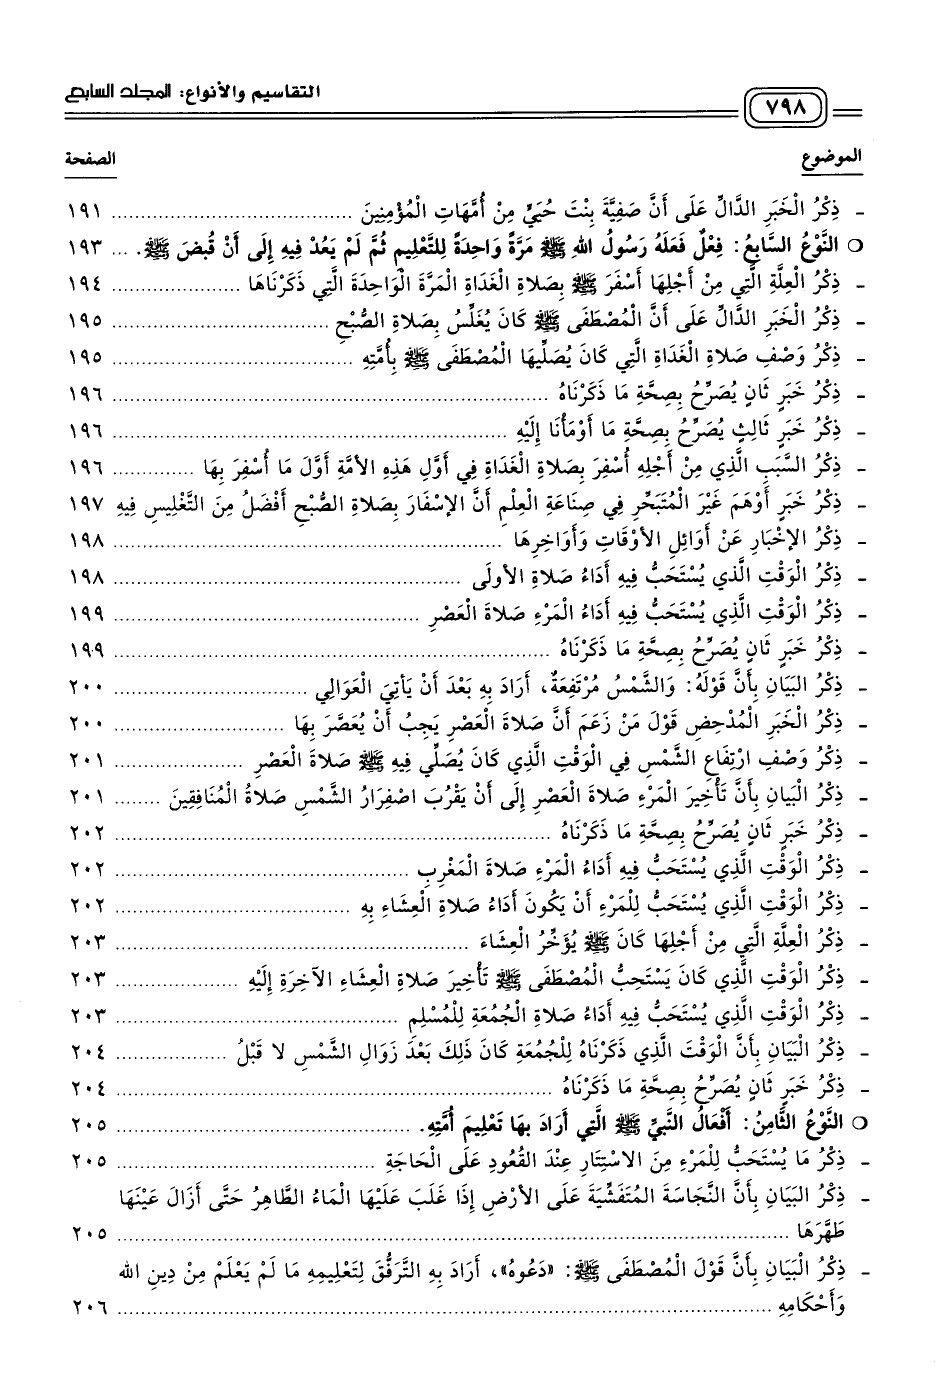 التقاسيم والأنواع: المجلد السابع
٧٩٨
الموضوع الصفحة
- ذِكْرُ الْخَبَرِ الدَّالِّ عَلَى أَنَّ صَفِيَّةَ بِنْتَ حُيَيٍّ مِنْ أُمَّهَاتِ الْمُؤْمِنِينَ ........ ١٩١
○ النَّوْعُ السَّابِعُ: فِعْلٌ فَعَلَهُ رَسُولُ اللهِ ﷺ مَرَّةً وَاحِدَةً لِلتَّعْلِيمِ ثُمَّ لَمْ يَعُدْ فِيهِ إِلَى أَنْ قُبِضَ ﷺ. ... ١٩٣
- ذِكْرُ الْعِلَّةِ الَّتِي مِنْ أَجْلِهَا أَسْفَرَ ﷺ بِصَلاةِ الْغَدَاةِ الْمَرَّةَ الْوَاحِدَةَ الَّتِي ذَكَرْنَاهَا ........ ١٩٤
- ذِكْرُ الْخَبَرِ الدَّالِّ عَلَى أَنَّ الْمُصْطَفَى ﷺ كَانَ يُغَلِّسُ بِصَلاةِ الصُّبْحِ ........ ١٩٥
- ذِكْرُ وَصْفِ صَلاةِ الْغَدَاةِ الَّتِي كَانَ يُصَلِّيهَا الْمُصْطَفَى ﷺ بِأُمَّتِهِ ........ ١٩٥
- ذِكْرُ خَبَرٍ ثَانٍ يُصَرِّحُ بِصِحَّةِ مَا ذَكَرْنَاهُ ........ ١٩٦
- ذِكْرُ خَبَرٍ ثَالِثٍ يُصَرِّحُ بِصِحَّةِ مَا أَوْمَأْنَا إِلَيْهِ ........ ١٩٦
- ذِكْرُ السَّبَبِ الَّذِي مِنْ أَجْلِهِ أُسْفِرَ بِصَلاةِ الْغَدَاةِ فِي أَوَّلِ هَذِهِ الأُمَّةِ أَوَّلَ مَا أُسْفِرَ بِهَا ........ ١٩٦
- ذِكْرُ خَبَرٍ أَوْهَمَ غَيْرَ الْمُتَبَحِّرِ فِي صِنَاعَةِ الْعِلْمِ أَنَّ الإِسْفَارَ بِصَلاةِ الصُّبْحِ أَفْضَلُ مِنَ التَّغْلِيسِ فِيهِ ١٩٧
- ذِكْرُ الإِخْبَارِ عَنْ أَوَائِلِ الأَوْقَاتِ وَأَوَاخِرِهَا ........ ١٩٨
- ذِكْرُ الْوَقْتِ الَّذِي يُسْتَحَبُّ فِيهِ أَدَاءُ صَلاةِ الأُولَى ........ ١٩٨
- ذِكْرُ الْوَقْتِ الَّذِي يُسْتَحَبُّ فِيهِ أَدَاءُ الْمَرْءِ صَلاةَ الْعَصْرِ ........ ١٩٩
- ذِكْرُ خَبَرٍ ثَانٍ يُصَرِّحُ بِصِحَّةِ مَا ذَكَرْنَاهُ ........ ١٩٩
- ذِكْرُ البَيَانِ بِأَنَّ قَوْلَهُ: وَالشَّمْسُ مُرْتَفِعَةٌ، أَرَادَ بِهِ بَعْدَ أَنْ يَأْتِيَ الْعَوَالِي ........ ٢٠٠
- ذِكْرُ الْخَبَرِ الْمُدْحِضِ قَوْلَ مَنْ زَعَمَ أَنَّ صَلاةَ الْعَصْرِ يَجِبُ أَنْ يُعَصَّرَ بِهَا ........ ٢٠٠
- ذِكْرُ وَصْفِ ارْتِفَاعِ الشَّمْسِ فِي الْوَقْتِ الَّذِي كَانَ يُصَلِّي فِيهِ ﷺ صَلاةَ الْعَصْرِ ........ ٢٠١
- ذِكْرُ الْبَيَانِ بِأَنَّ تَأْخِيرَ الْمَرْءِ صَلاةَ الْعَصْرِ إِلَى أَنْ يَقْرُبَ اصْفِرَارُ الشَّمْسِ صَلاةُ الْمُنَافِقِينَ ........ ٢٠١
- ذِكْرُ خَبَرٍ ثَانٍ يُصَرِّحُ بِصِحَّةِ مَا ذَكَرْنَاهُ ........ ٢٠٢
- ذِكْرُ الْوَقْتِ الَّذِي يُسْتَحَبُّ فِيهِ أَدَاءُ الْمَرْءِ صَلاةَ الْمَغْرِبِ ........ ٢٠٢
- ذِكْرُ الْوَقْتِ الَّذِي يُسْتَحَبُّ لِلْمَرْءِ أَنْ يَكُونَ أَدَاءُ صَلاةِ الْعِشَاءِ بِهِ ........ ٢٠٢
- ذِكْرُ الْعِلَّةِ الَّتِي مِنْ أَجْلِهَا كَانَ ﷺ يُؤَخِّرُ الْعِشَاءَ ........ ٢٠٣
- ذِكْرُ الْوَقْتِ الَّذِي كَانَ يَسْتَحِبُّ الْمُصْطَفَى ﷺ تَأْخِيرَ صَلاةِ الْعِشَاءِ الآخِرَةِ إِلَيْهِ ........ ٢٠٣
- ذِكْرُ الْوَقْتِ الَّذِي يُسْتَحَبُّ فِيهِ أَدَاءُ صَلاةِ الْجُمُعَةِ لِلْمُسْلِمِ ........ ٢٠٣
- ذِكْرُ الْبَيَانِ بِأَنَّ الْوَقْتَ الَّذِي ذَكَرْنَاهُ لِلْجُمُعَةِ كَانَ ذَلِكَ بَعْدَ زَوَالِ الشَّمْسِ لا قَبْلُ ........ ٢٠٤
- ذِكْرُ خَبَرٍ ثَانٍ يُصَرِّحُ بِصِحَّةِ مَا ذَكَرْنَاهُ ........ ٢٠٤
○ النَّوْعُ الثَّامِنُ: أَفْعَالُ النَّبِيِّ ﷺ الَّتِي أَرَادَ بِهَا تَعْلِيمَ أُمَّتِهِ. ........ ٢٠٥
- ذِكْرُ مَا يُسْتَحَبُّ لِلْمَرْءِ مِنَ الاسْتِتَارِ عِنْدَ الْقُعُودِ عَلَى الْحَاجَةِ ........ ٢٠٥
- ذِكْرُ البَيَانِ بِأَنَّ النَّجَاسَةَ الْمُتَفَشِّيَةَ عَلَى الأَرْضِ إِذَا غَلَبَ عَلَيْهَا الْمَاءُ الطَّاهِرُ حَتَّى أَزَالَ عَيْنَهَا
طَهَّرَهَا ........ ٢٠٥
- ذِكْرُ الْبَيَانِ بِأَنَّ قَوْلَ الْمُصْطَفَى ﷺ: «دَعُوهُ»، أَرَادَ بِهِ التَّرَفُّقَ لِتَعْلِيمِهِ مَا لَمْ يَعْلَمْ مِنْ دِينِ اللهِ
وَأَحْكَامِهِ ........ ٢٠٦